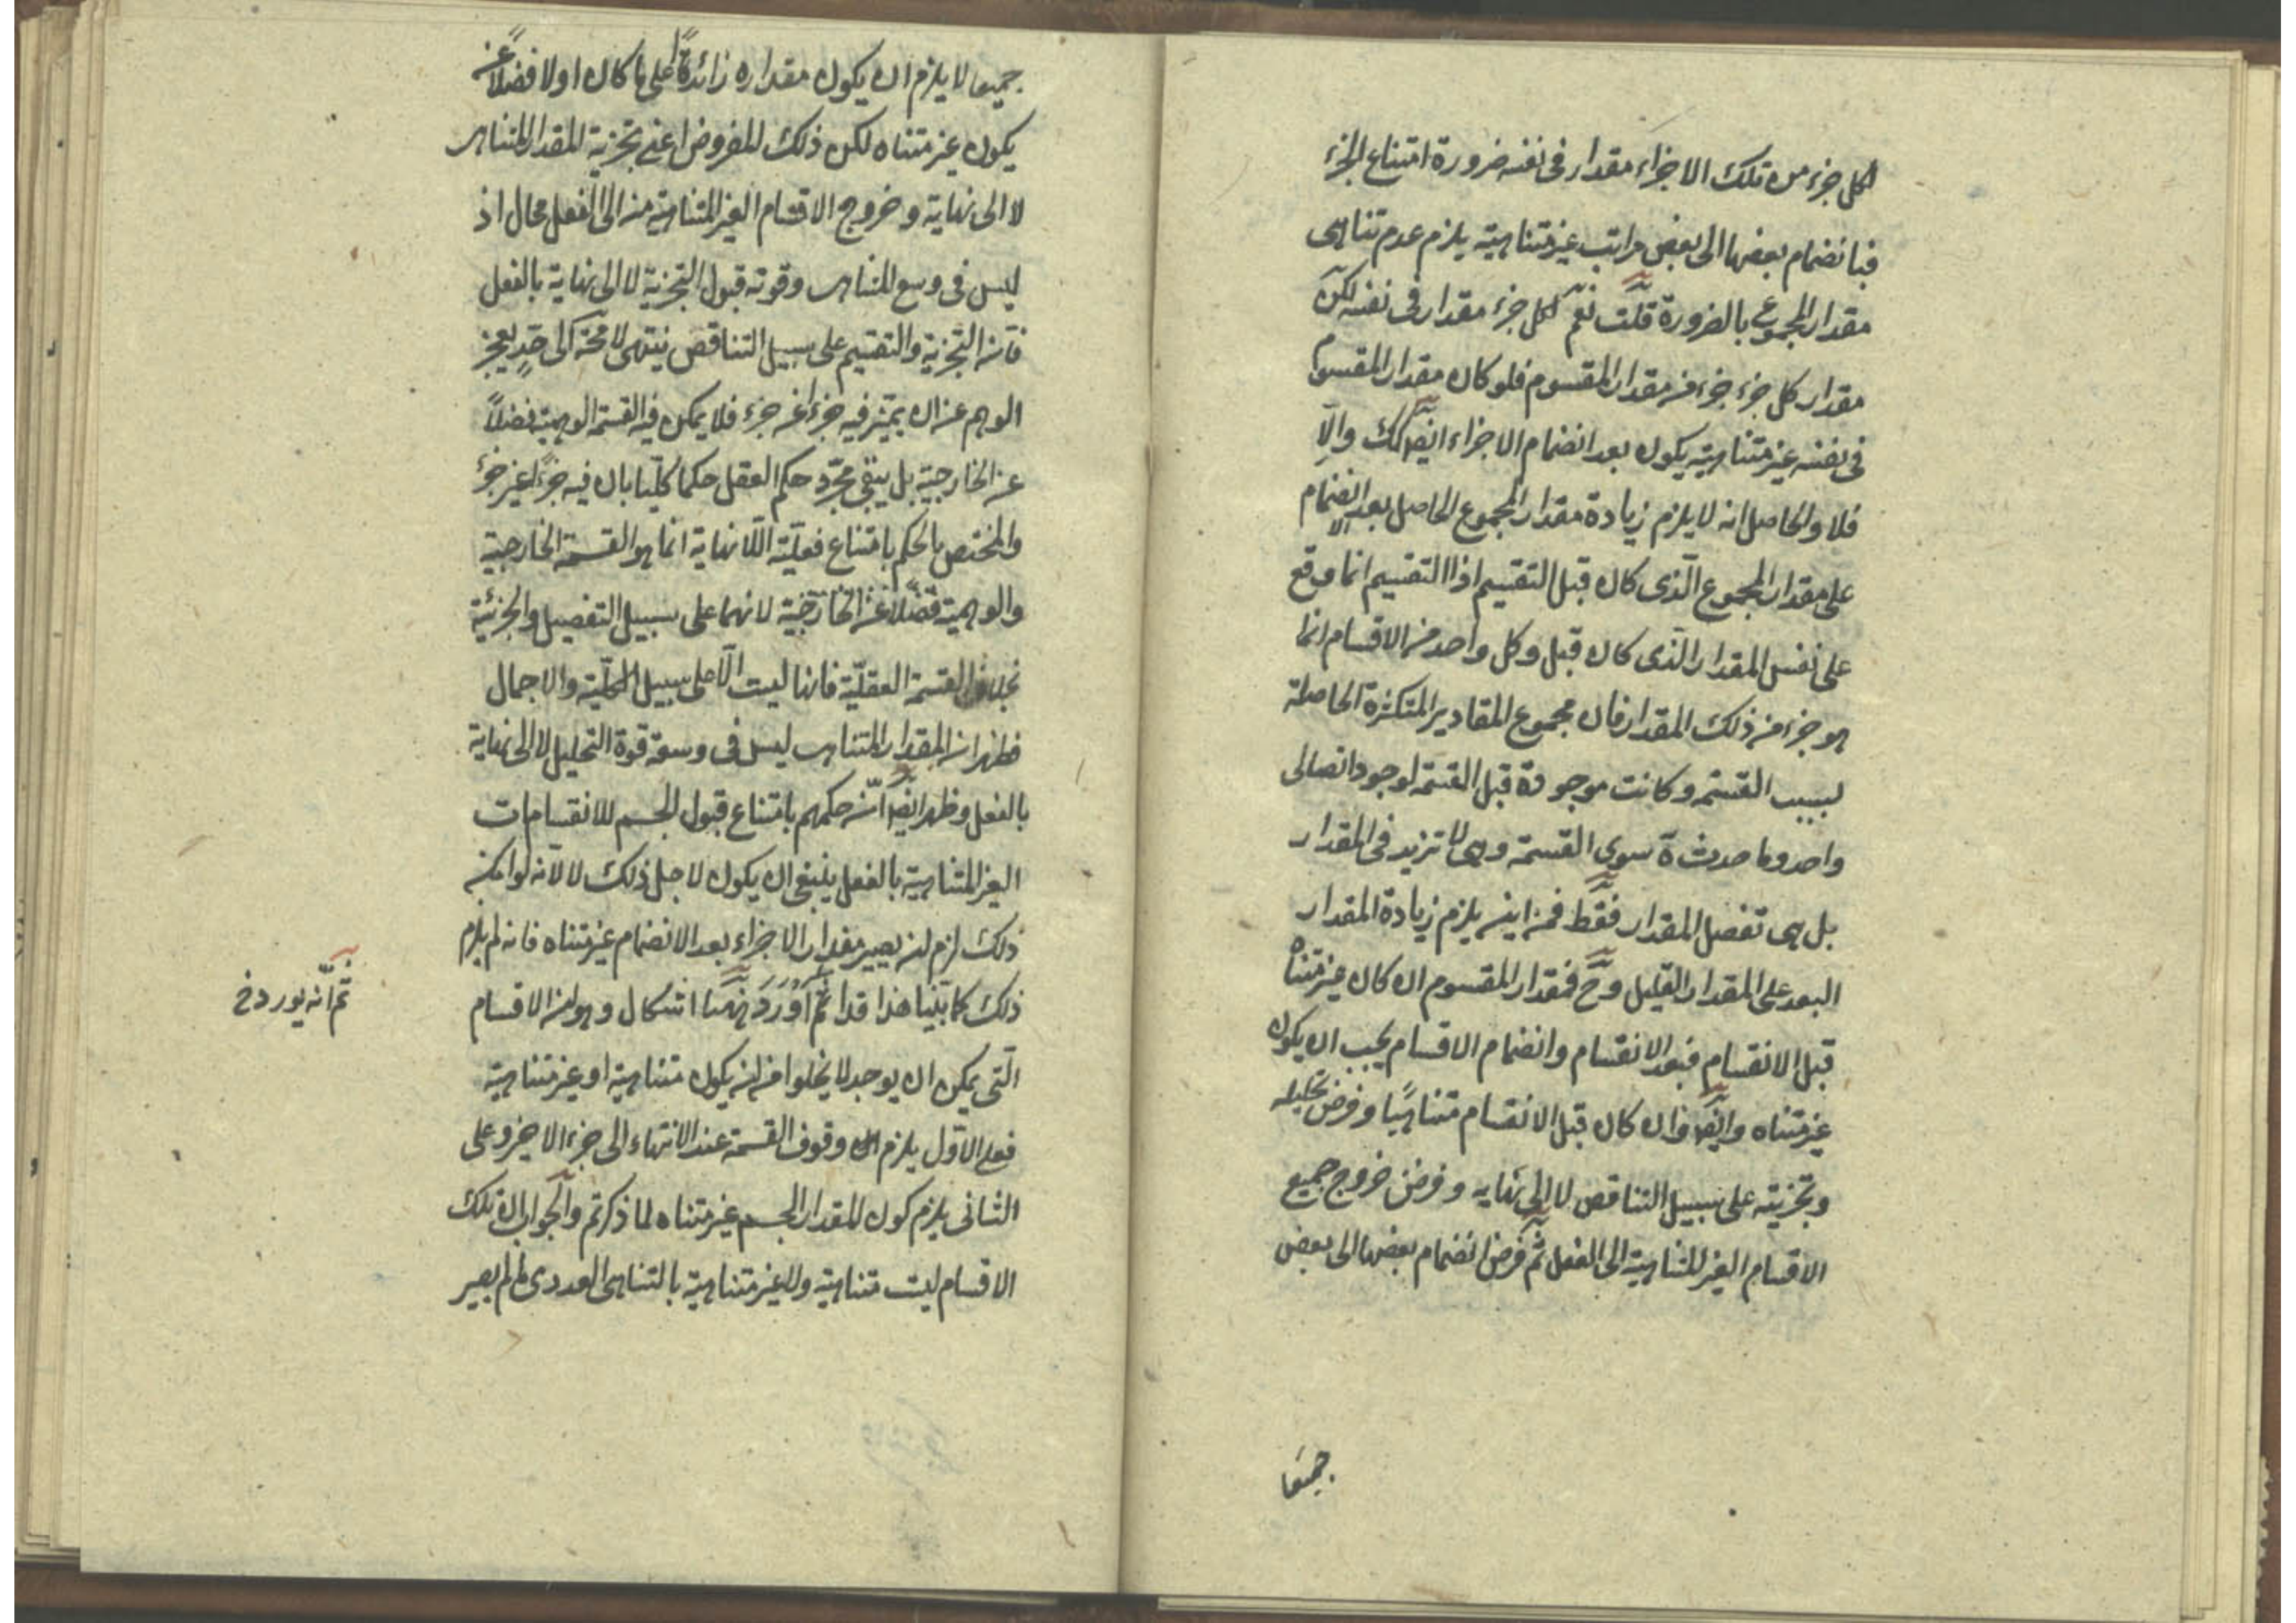 لكل جزء من تلك الاجزاء مقدار فى نفسه ضرورة امتناع الجزء
فبانضمام بعضها الى بعض مراتب غير متناهية يلزم عدم تناهى
مقدار المجموع بالضرورة قلت نعم لكل جزء مقدار فى نفسه لكن
مقدار كل جزء جزء من مقدار المقسوم فلو كان مقدار المقسوم
فى نفسه غير متناهية يكون بعد انضمام الاجزاء ايضا كك والا
فلا والحاصل انه لا يلزم زيادة مقدار المجموع الحاصل بعد الانضمام
على مقدار المجموع الّذى كان قبل التقسيم اذا التقسيم انما وقع
على نفس المقدار الّذى كان قبل وكل واحد من الاقسام انما
هو جزء من ذلك المقدار فان مجموع المقادير المتكثرة الحاصلة
بسبب القسمة وكانت موجودة قبل القسمة لوجود اتصالى
واحد وما حدث ة سوى القسمة وهى لا تزيد فى المقدار
بل هى تفصل المقدار فقط فمن اين يلزم زيادة المقدار
البعد على المقدار القبل وح فمقدار المقسوم ان كان غير متناه
قبل الانقسام فبعد الانقسام وانضمام الاقسام يجب ان يكون
غير متناه وايضا وان كان قبل الانقسام متناهيًا وفرض تحليله
وتجزيته على سبيل التناقص لا الى نهايه وفرض خروج جميع
الاقسام الغير المتناهية الى الفعل ثم فرض انضمام بعضها الى بعض
جميعا
جميعا لا يلزم ان يكون مقداره زائدةً على ما كان اولا فضلاً عن
يكون غير متناه لكن ذلك المفروض اعنى تجزية المقدار المتناهى
لا الى نهاية وخروج الاقسام الغير المتناهية منه الى الفعل محال اذ
ليس فى وسع المتناهى وقوته قبول التجزية لا الى نهاية بالفعل
فان التجزية والتقسيم على سبيل التناقص ينتهى لا محة الى حدٍ يعجز
الوهم عن ان يميّز فيه جزءًا عن جزء فلا يمكن فيه القسمة الوهمية فضلاً
عن الخارجية بل يبقى مجرّد حكم العقل حكما كلّيا بان فيه جزءً غير جزء
والمختص بالحكم بامتناع فعليّة اللّانهاية انما هو القسمة الخارجية
والوهمية فضلاً عن الخارجية لانهما على سبيل التفصيل والجزئية
بخلاف القسمة العقليّة فانها ليست الّا على سبيل الكلّية والاجمال
فظهر ان المقدار المتناهى ليس فى وسعة قوة التحليل لا الى نهاية
بالفعل وظهر ايضا انّ حكمهم بامتناع قبول الجسم للانقسامات
الغير المتناهية بالفعل ينبغى ان يكون لاجل ذلك لا لانه لو امكن
ذلك لزم ان يصير مقدار الاجزاء بعد الانضمام غير متناه فانه لم يلزم
ذلك كما بيّنا هذا ثم اورد ههنا اشكال وهو ان الاقسام
الّتى يمكن ان يوجد لا يخلوا من ان يكون متناهية او غير متناهية
فعلى الاوّل يلزم وقوف القسمة عند الانتهاء الى جزء الاخير وعلى
الثانى يلزم كون المقدار الجسم غير متناه لما ذكرتم والجواب ان تلك
الاقسام ليست متناهية ولا غير متناهية بالتناهى العددى لم يصير
ثم انّه يورد خ